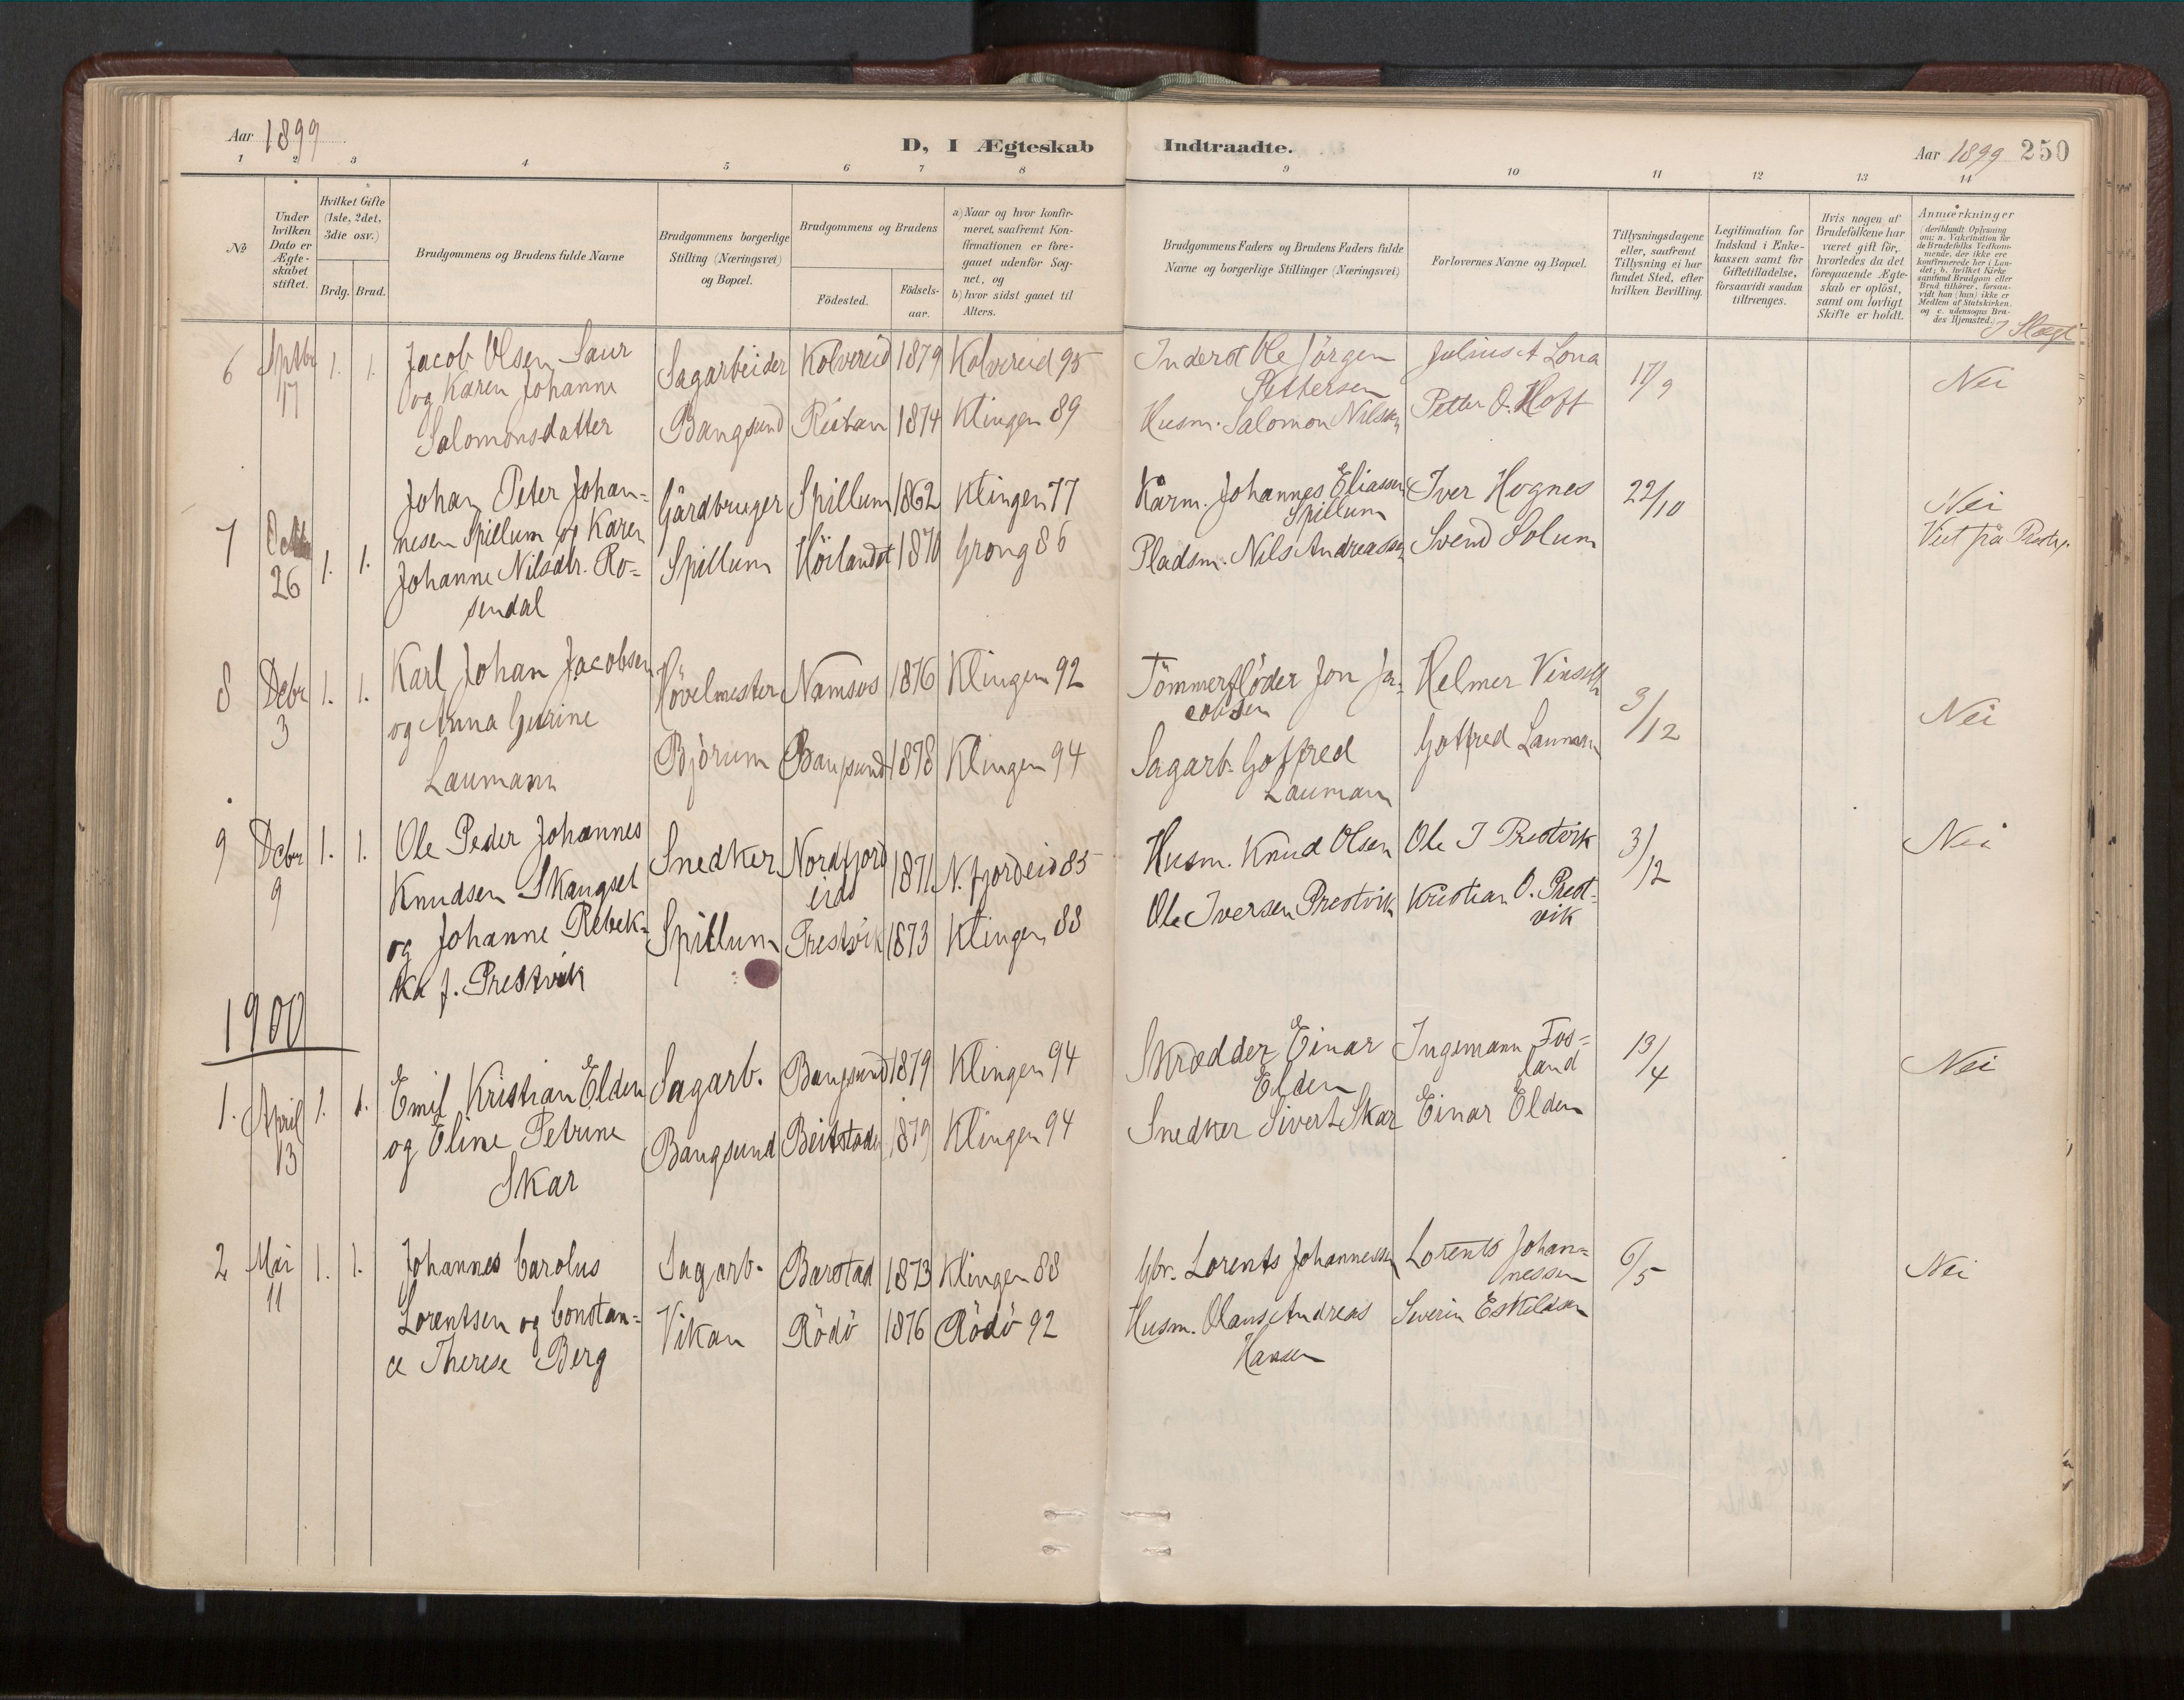 Aar 1899
D, I Ægteskab Indtraadte.
Aar 1899 250
1 2 3 4 5 6 7 8 9 10 11 12 13 14
No
Under hvilken Dato er Ægteskabet stiftet.
Hvilket Gifte (1ste, 2det, 3die osv.)
Brdg. Brud.
Brudgommens og Brudens fulde Navne
Brudgommens borgerlige Stilling (Næringsvei) og Bopæl.
Brudgommens og Brudens
Födested.
Födsels-aar.
a) Naar og hvor konfirmeret, saafremt Konfirmationen er foregaaet udenför Sognet, og
b) hvor sidst gaaet til Alters.
Brudgommens Faders og Brudens Faders fulde Navne og borgerlige Stillinger (Næringsvei)
Forlovernes Navne og Bopæl.
Tillysningsdagene eller, saafremt Tillysning ei har fundet Sted, efter hvilken Bevilling.
Legitimation for Indskud i Enkekassen samt for Giftetilladelse, forsaavidt saadan tiltrænges.
Hvis nogen af Brudefolkene har været gift för, hvorledes da det foregaaende Ægteskab er oplöst, samt om lovligt Skifte er holdt.
Anmærkninger (deriblandt Oplysning om: a. Vakcination for de Brudefolks Vedkommende, der ikke ere konfirmerede her i Landet; b. hvilket Kirkesamfund Brudgom eller Brud tilhörer, forsaavidt han (hun) ikke er Medlem af Statskirken, og c. udensogns Brudes Hjemsted.)
I Slægt
6 Sptbr 17 1. 1.
Jacob Olsen Saur
og Karen Johanne
Salomonsdatter
Sagarbeider Kolvereid 1879 Kolvereid 95
Bangsund 1874 Klingen 89
Inderst Ole Jörgen
Pettersen
Husm. Salomon Nilsen
Julius A Lona
Petter O. Hoft
17/9
Nei
7 26 1. 1.
Johan Peter Johan=
nesen Spillum og Karen
Johanne Nilsdtr. Ro=
sendal
Gårdbruger Spillum 1862 Klingen 77
Spillum Höilandet 1870 Grong 86
Kårm. Johannes Eliassen
Spillum
Pladsm. Nils Andreassen
Iver Hognes
Svend Solum
22/10
Nei
Viet på
8 Debr 3 1. 1.
Karl Johan Jacobsen
og Anna Gurine
Laumann
Hövelmester Namsos 1876 Klingen 92
Bjørum Bangsund 1878 Klingen 94
Tömmerflöder Jon Ja=
cobsen
Sagarb. Gotfred
Laumann
Helmer
Gotfred Laumann
3/12
Nei
9 Debr 9 1. 1.
Ole Peder Johannes
Knudsen Skangset
og Johanne Rebek=
ka f. Prestvik
Snedker Nordfjord
eid 1871 N. fjordeid 85
Spillum Prestvik 1873 Klingen 88
Husm. Knud Olsen
Ole Iversen Prestvik
Ole I Prestvik
Kristian O. Prest=
vik
3/12
Nei
1900
1. April 13 1. 1.
Emil Kristian Elden
og Eline Petrine
Skar
Sagarb. Bangsund 1879 Klingen 94
Bangsund Beitstaden 1879 Klingen 94
Skrædder Einar
Elden
Snedker Sivert Skar
Ingemann Fos=
land
Einar Elden
13/4
Nei
2 Mai 11 1. 1.
Johannes Carolus
Lorentsen og Constan=
ce Therese Berg
Sagarb. Barstad 1873 Klingen 88
Vikan Rödö 1876 Rödö 92
Gbr. Lorents Johannessen
Husm. Olaus Andreas
Hansen
Lorents Johan=
nessen
Severin Eskildsen
6/5
Nei